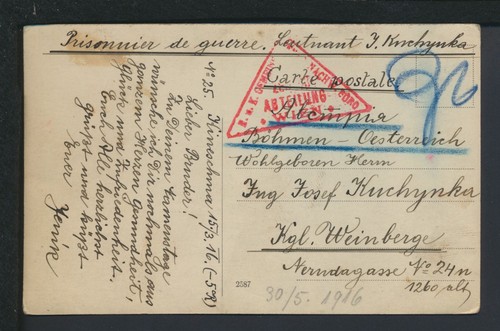 Prisonnier de guerre. Leutnant J. Kuchynka
Carte postale
ABTEILUNG
Böhmen - Oesterreich
Wohlgeboren Herrn
Ing Josef Kuchynka
Kgl. Weinberge
Nerudagasse No 24 n
1260 alt
No 25. Kineschma 15/3.16. (-5°R)
Lieber Bruder!
Zu Deinem Namenstage
wünsche ich Dir nochmals aus
ganzem Herzen Gesundheit,
Glück und Zufriedenheit.
Euch Alle herzlichst
grüsst und küsst
Euer
2587
30/5. 1916